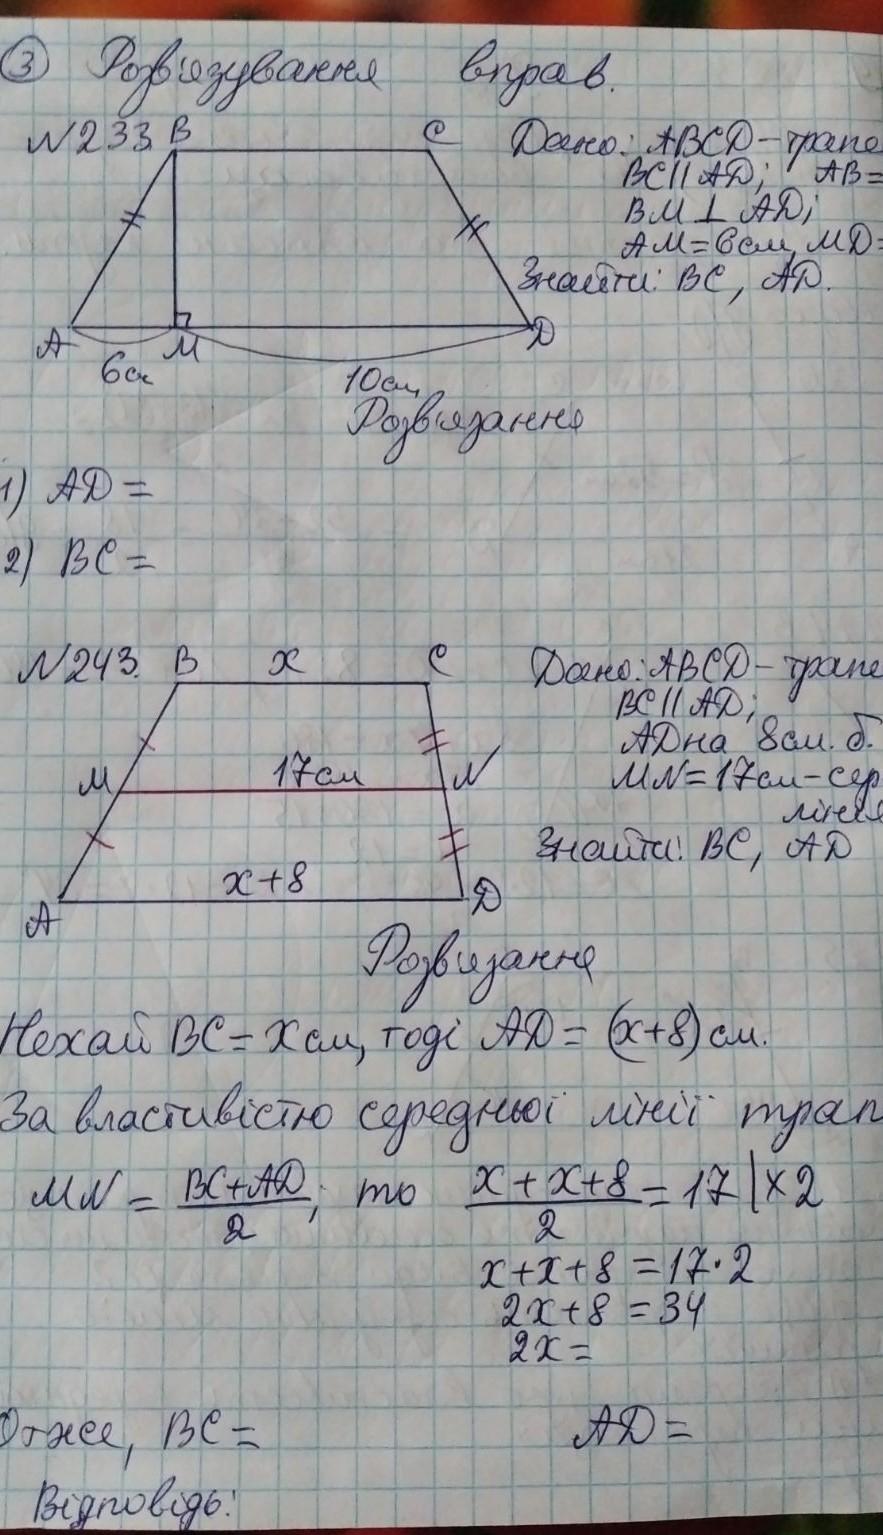 ③ Розв'язування вправ.
N233.
B C
A M D
6см
10см
Дано: ABCD – трапе
BC || AD; AB =
BM ⊥ AD;
AM = 6см, MD =
Знайти: BC, AD.
Розв'язання
1) AD =
2) BC =
N243.
B x C
M 17см N
x+8
A D
Дано: ABCD – трапе
BC || AD;
AD на 8см. б.
MN = 17см – сер
лінія
Знайти: BC, AD
Розв'язання
Нехай BC = x см, тоді AD = (x+8) см.
За властивістю середньої лінії трап
MN = (BC+AD)/2; то (x+x+8)/2 = 17 | ×2
x+x+8 = 17·2
2x+8 = 34
2x =
Отже, BC = AD =
Відповідь: